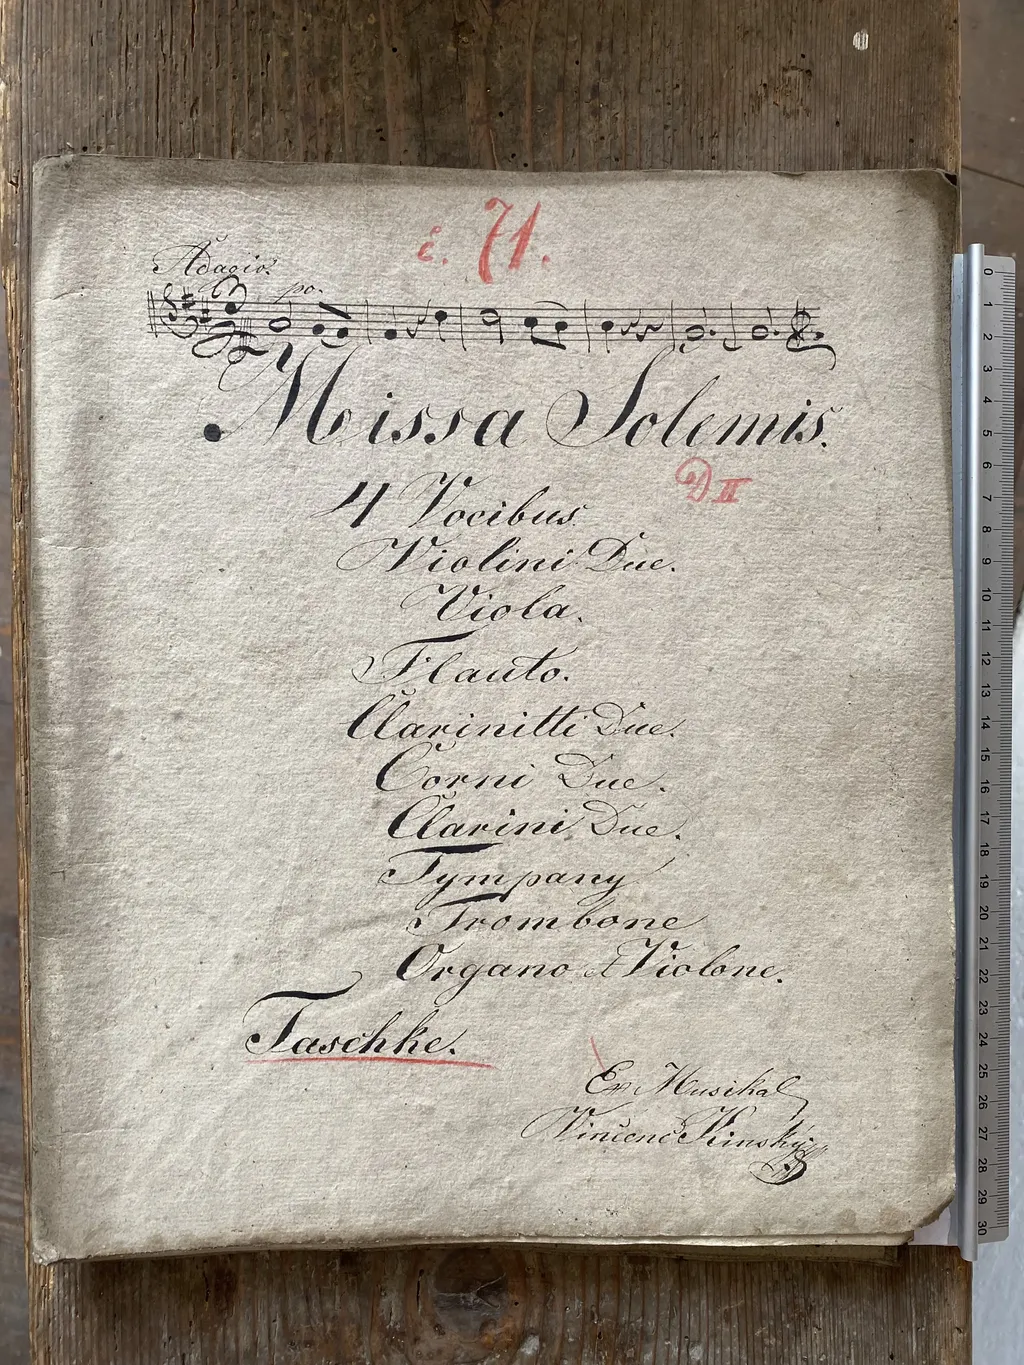 č. 71.
Adagio.
po.
Missa Solemis.
D II
4 Vocibus.
Violini Due.
Viola.
Flauto.
Clarinitti Due.
Corni Due.
Clarini Due.
Tympany
Trombone
Organo et Violone.
Taschke.
Ex Musikal
Vincenc Kinský
0 1 2 3 4 5 6 7 8 9 10 11 12 13 14 15 16 17 18 19 20 21 22 23 24 25 26 27 28 29 30